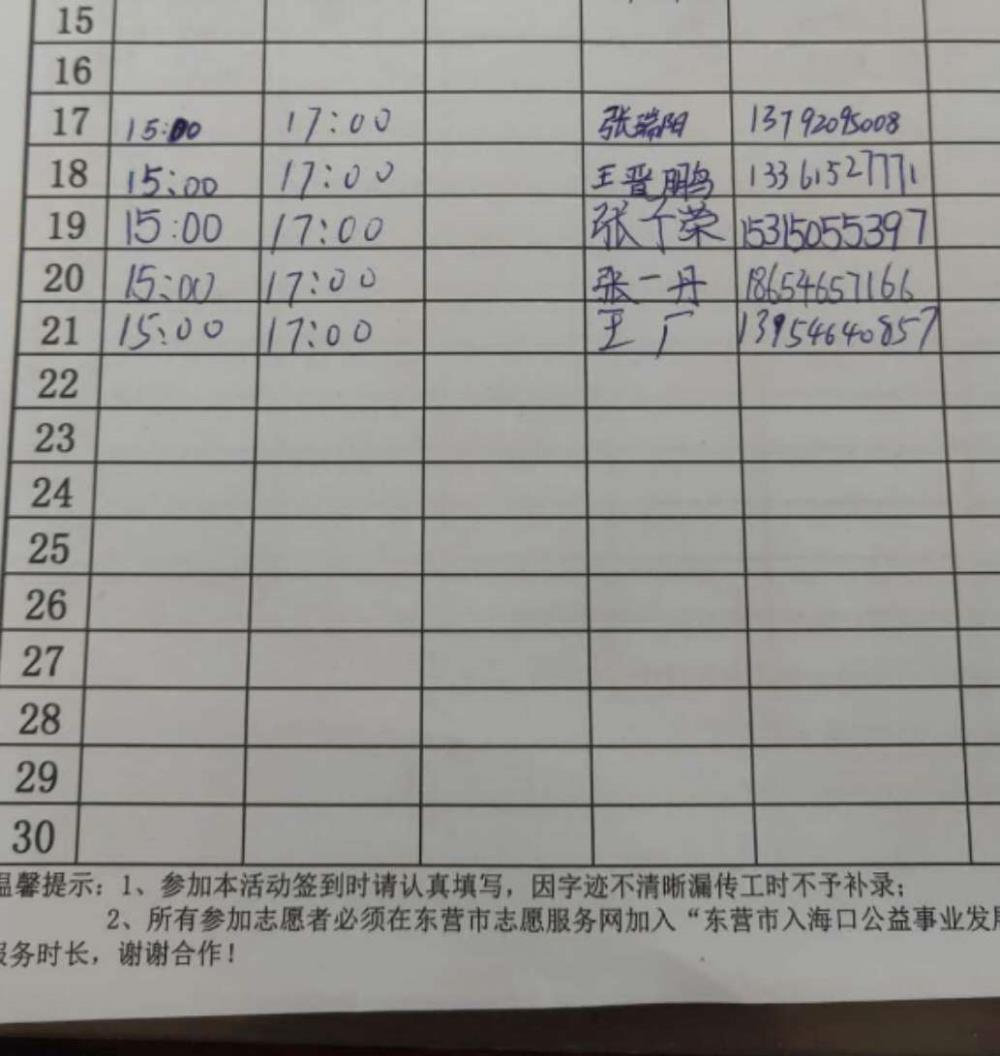 15
16
17 15:00 17:00 张瑞阳 13792095008
18 15:00 17:00 王晋鹏 13361527771
19 15:00 17:00 张于荣 15315055397
20 15:00 17:00 张一丹 18654657166
21 15:00 17:00 王广 13954640857
22
23
24
25
26
27
28
29
30
温馨提示：1、参加本活动签到时请认真填写，因字迹不清晰漏传工时不予补录；
2、所有参加志愿者必须在东营市志愿服务网加入“东营市入海口公益事业发展
服务时长，谢谢合作！